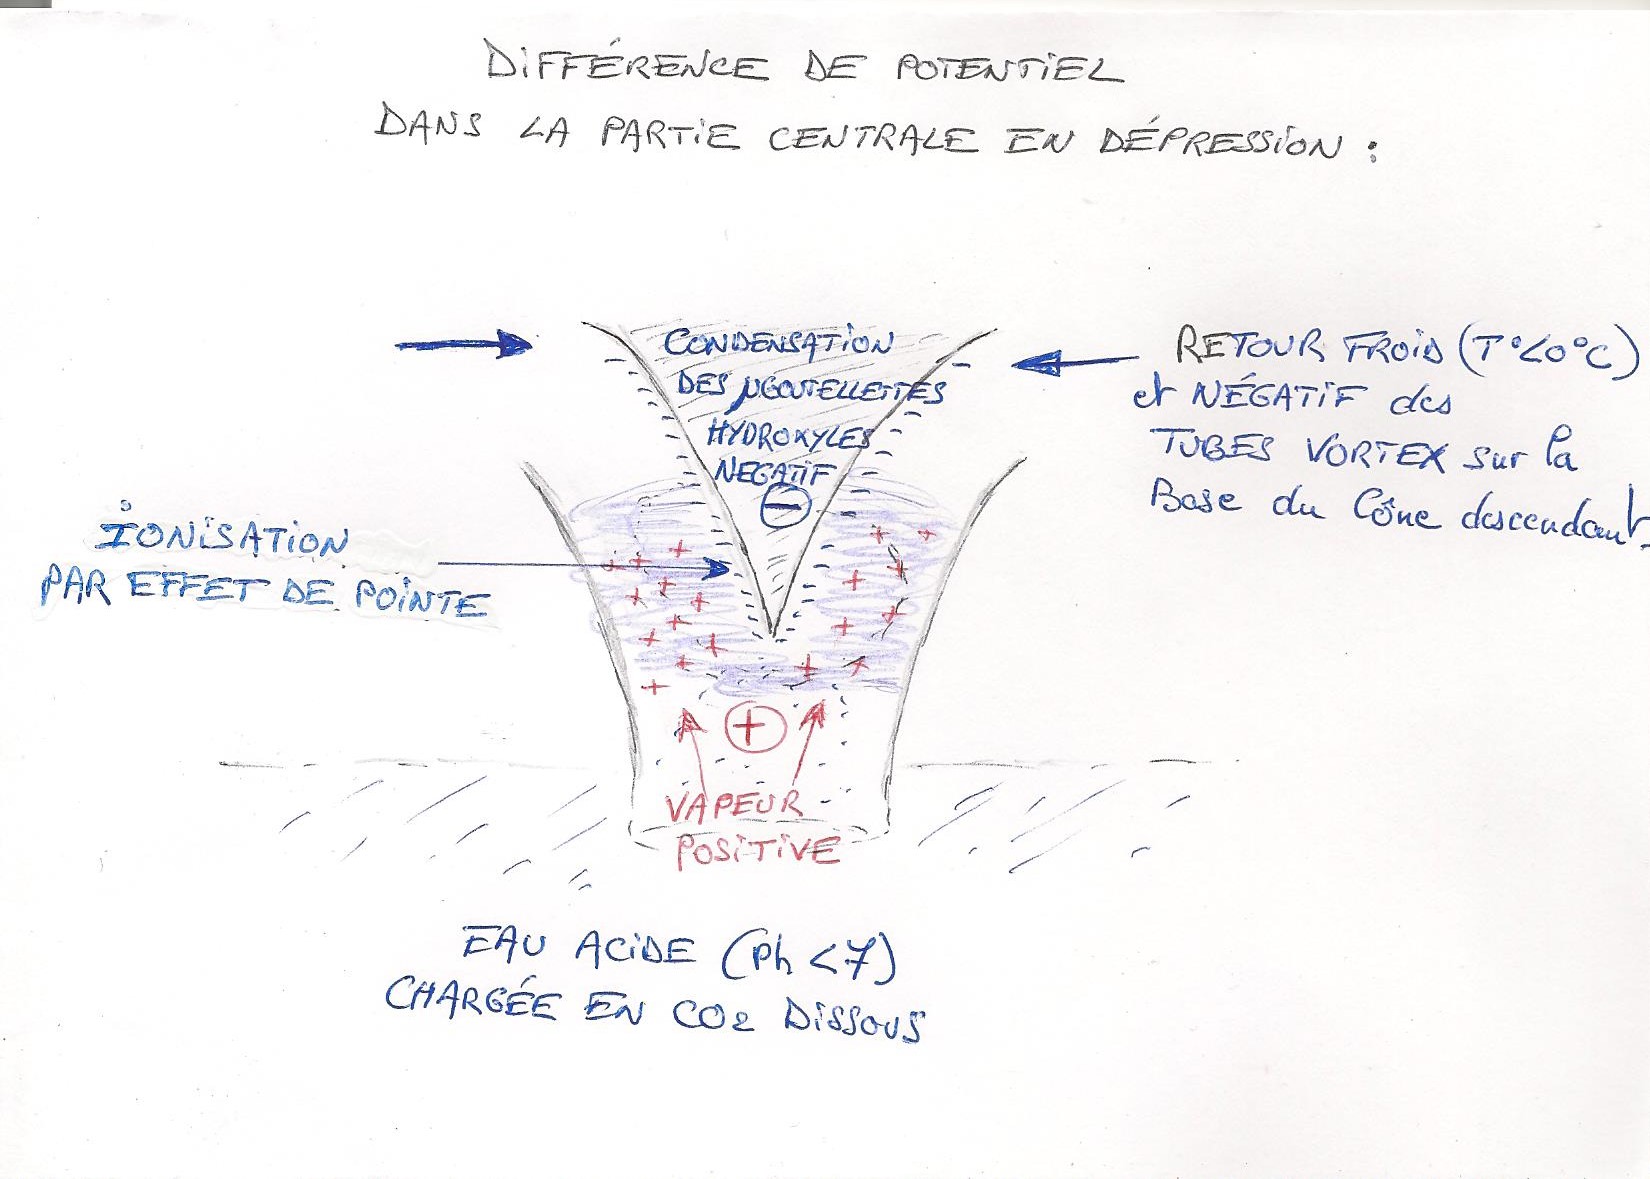 DIFFÉRENCE DE POTENTIEL
DANS LA PARTIE CENTRALE EN DÉPRESSION :
CONDENSATION
DES µGOUTELLETTES
HYDROXYLES
NEGATIF
−
RETOUR FROID (T°<0°C)
et NÉGATIF des
TUBES VORTEX sur la
Base du Cône descendant.
IONISATION
PAR EFFET DE POINTE
+
VAPEUR
POSITIVE
EAU ACIDE (Ph <7)
CHARGÉE EN CO2 DISSOUS